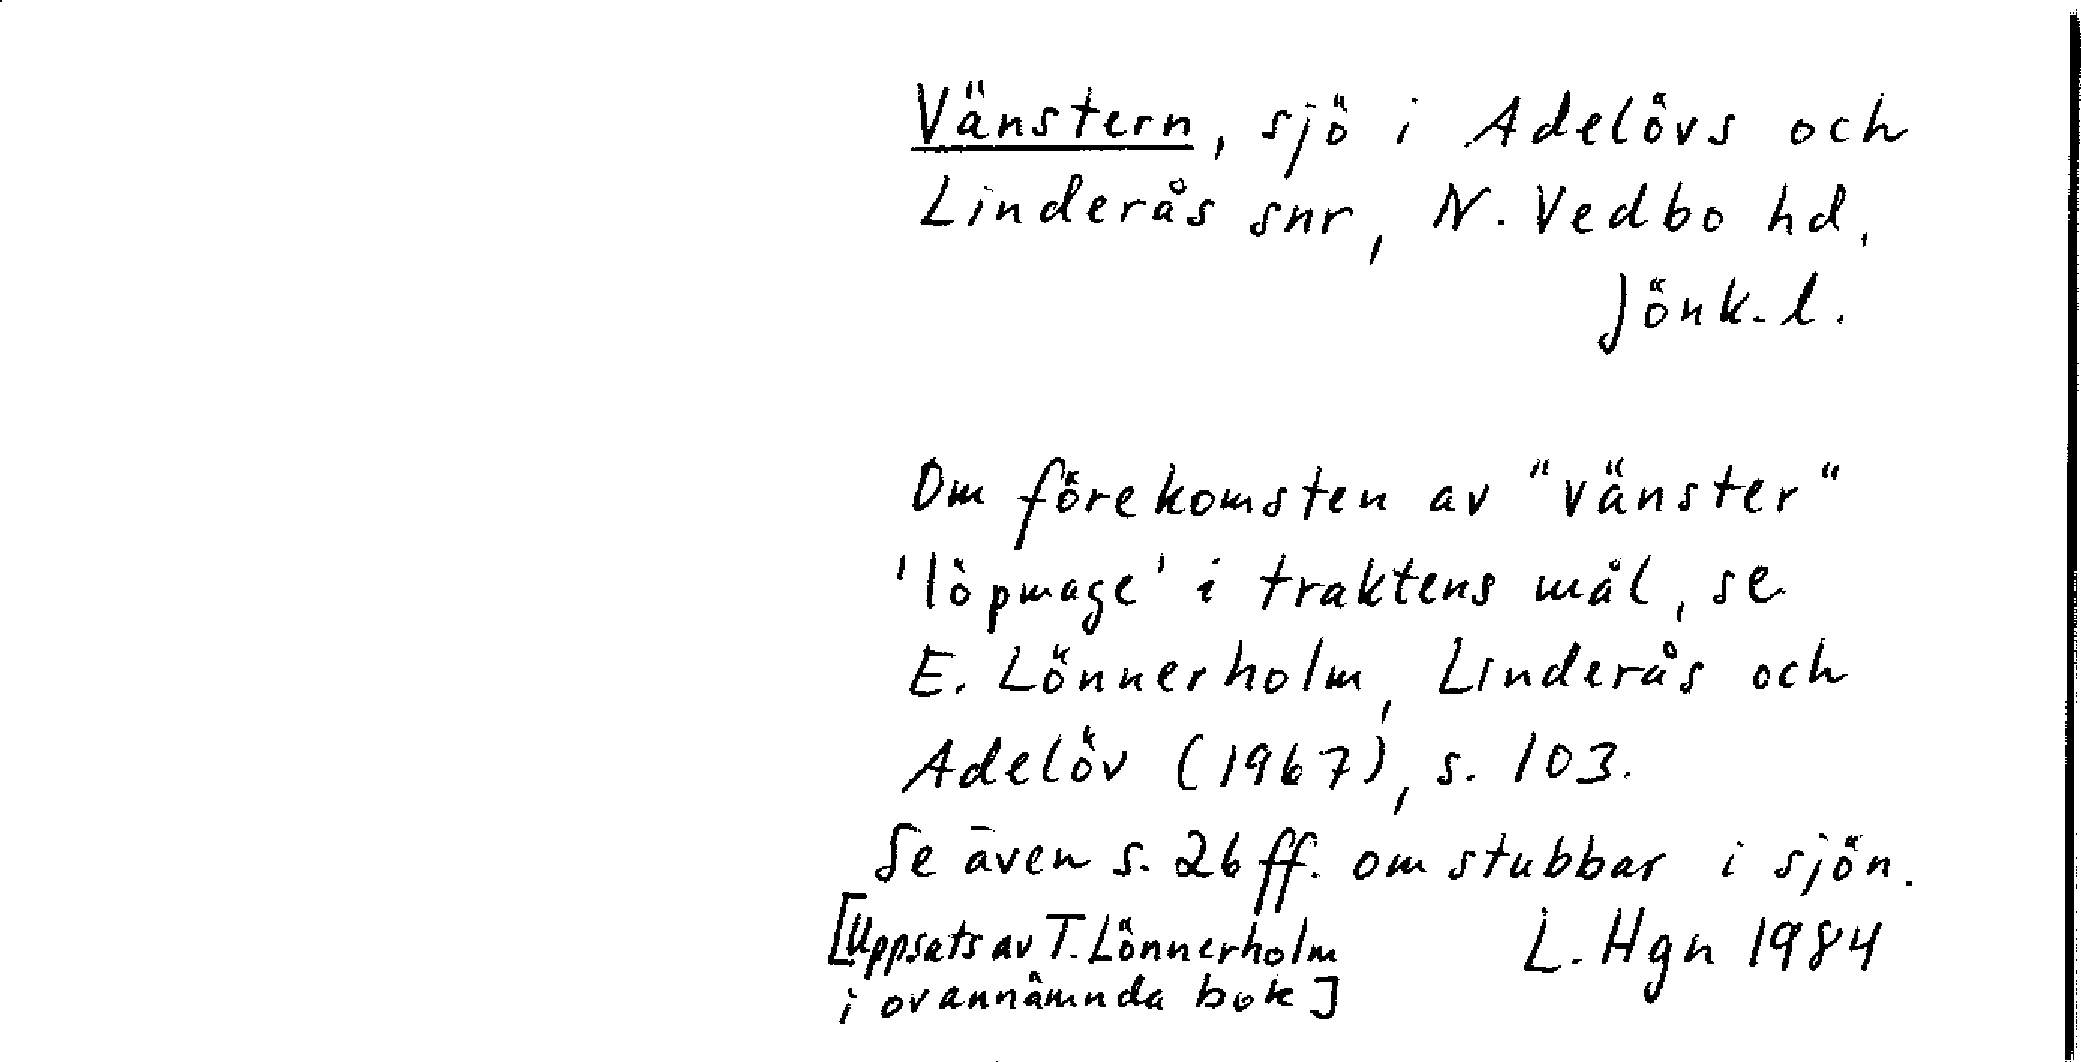 Vänstern, sjö i Adelövs och
Linderås snr, N. Vedbo hd,
Jönk. l.
Om förekomsten av "vänster"
'löpmage' i traktens mål, se
E. Lönnerholm, Linderås och
Adelöv (1967), s. 103.
Se även s. 26 ff. om stubbar i sjön.
[Uppsats av T. Lönnerholm
i ovannämnda bok]
L. Hgn 1984